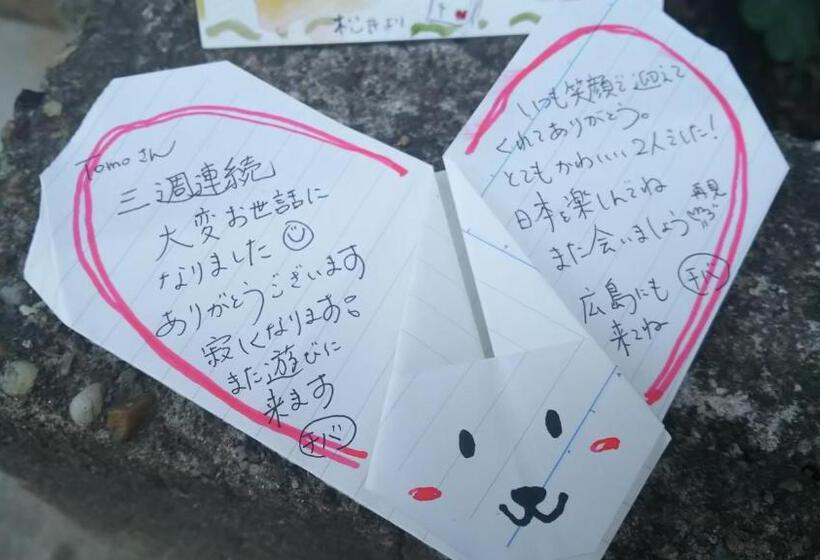 松さきより
Tomoさん
三週連続
大変お世話に
なりました
ありがとうございます
寂しくなります。
また遊びに
来ます
チバ
いつも笑顔で迎えて
くれてありがとう。
とてもかわいい2人でした!
日本を楽しんでね
また会いましょう
再見
チバ
広島にも
来てね